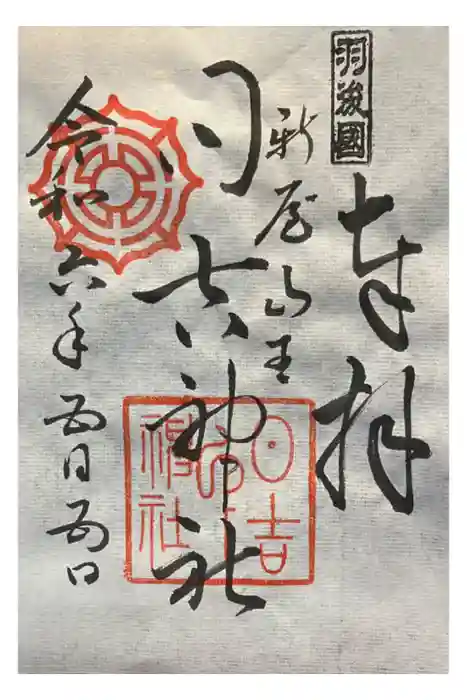 羽後國
奉拝
新屋山王
日吉神社
令和六年五月五日
日吉
神社